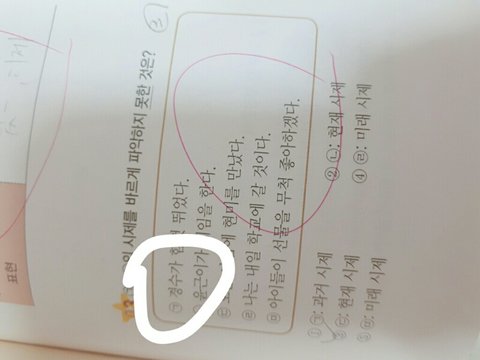 표현
시제를 바르게 파악하지 못한 것은?
㉠ 경수가 뛰었다.
㉡ 윤근이가 한다.
㉢ 현미를 만났다.
㉣ 나는 내일 학교에 갈 것이다.
㉤ 아이들이 선물을 무척 좋아하겠다.
① ㉠: 과거 시제 ② ㉡: 현재 시제
③ ㉢: 현재 시제 ④ ㉣: 미래 시제
⑤ ㉤: 미래 시제